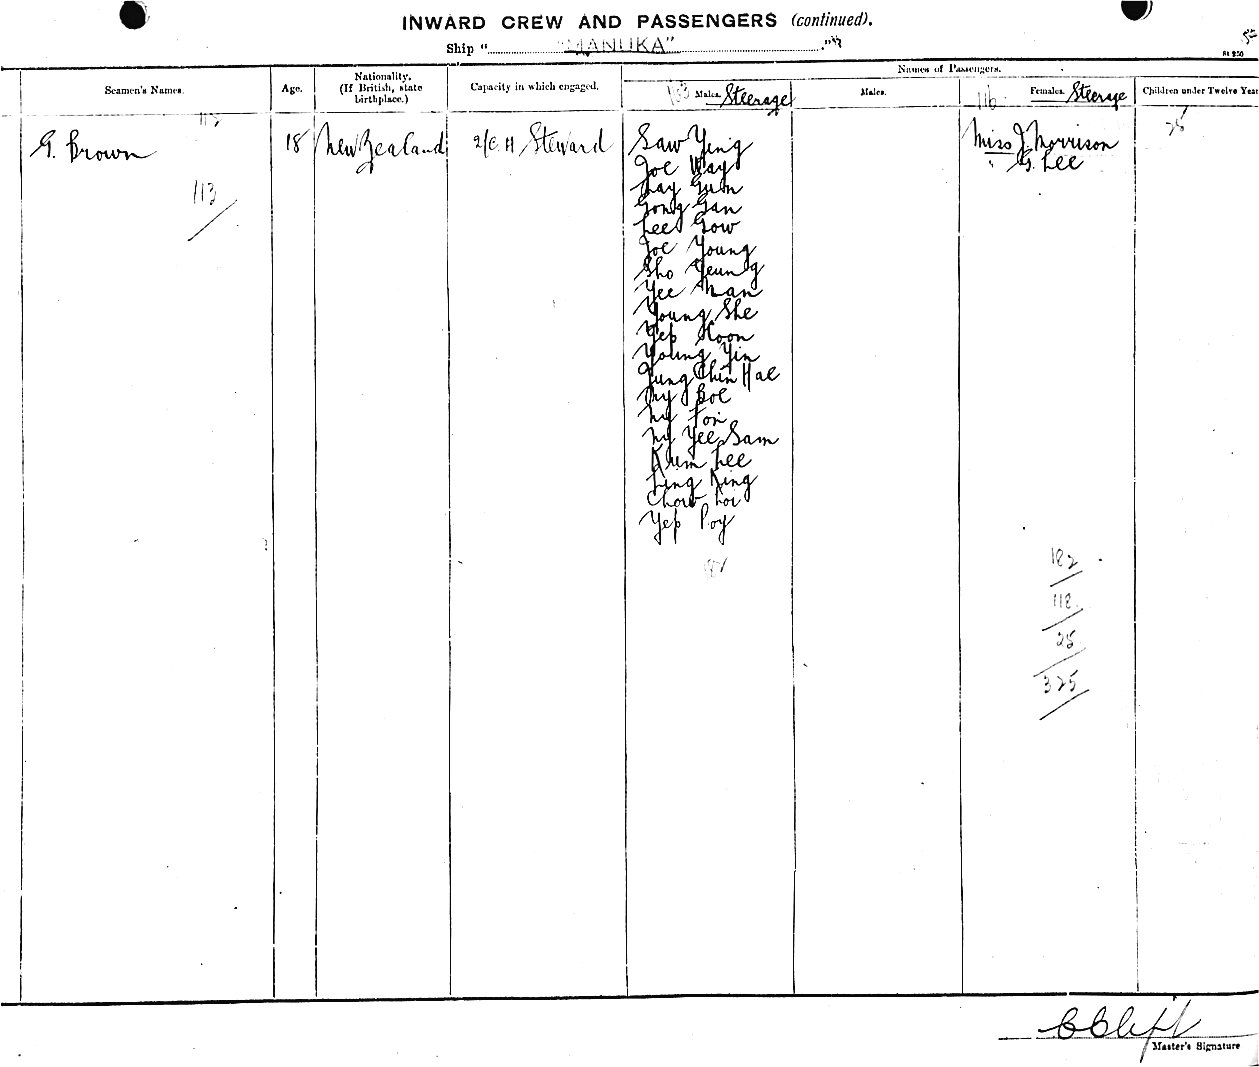 INWARD CREW AND PASSENGERS (continued).
Ship "MANUKA"
Seamen's Names.
Age.
Nationality, (If British, state birthplace.)
Capacity in which engaged.
Names of Passengers.
163 Males. Steerage
Males.
116 Females. Steerage
Children under Twelve Year
112
25
G. Brown
18
New Zealand
Steward
113
Saw Ying
Joe Way
Lay Gum
Gong Gan
Lee Gow
Joe Young
Sho Yeung
Yee Man
Young She
Yep Hoon
Young Yin
Yung Chin Hae
Ny Boe
Ny Foi
Ny Yee Sam
Kum Lee
Ling King
Chow Loi
Yep Poy
Miss J Morrison
" G. Lee
182
118
25
325
Master's Signature